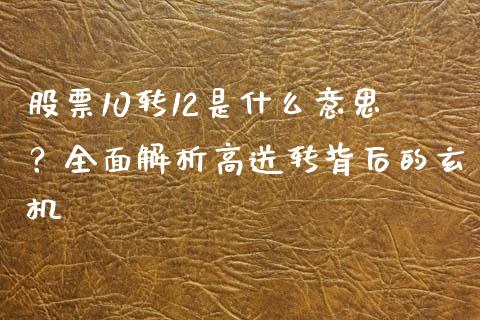 股票10转12是什么意思
？全面解析高送转背后的玄
机